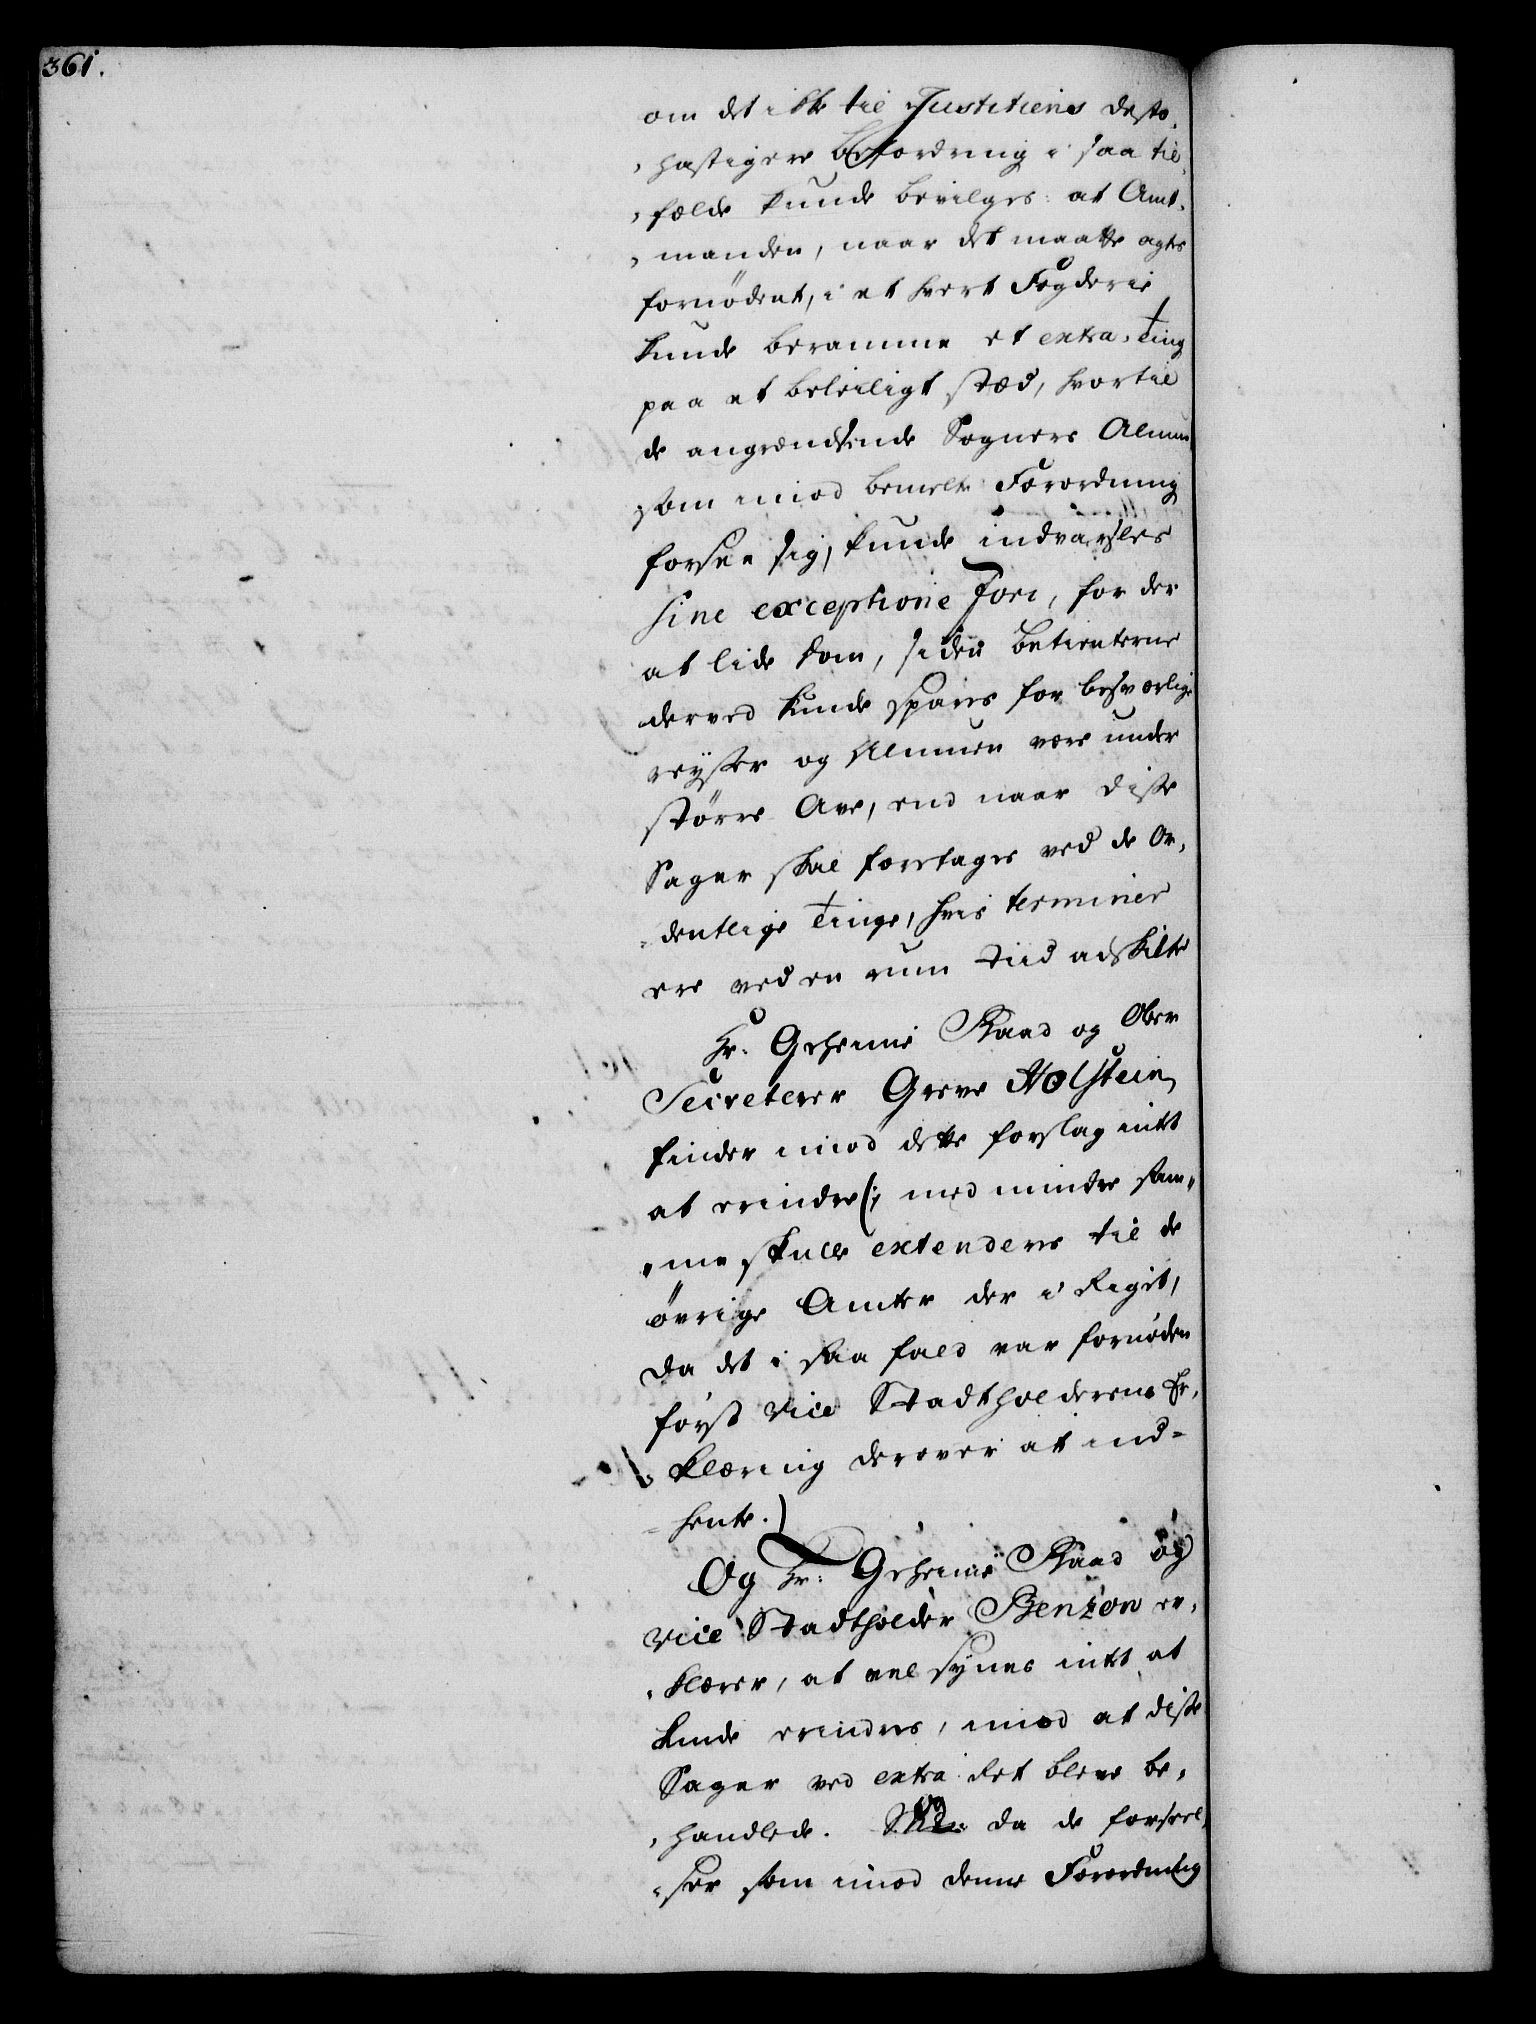 361.
om det ikke til Justitiens desto,
,hastigere befordring i saa til,
,fælde kunde bevilges: at Amt,
,manden, naar det maatte agtes
fornødent, i et hvert Fogderie
kunde beramme et extra-Ting
paa et beleiligt stæd, hvortil
de angrændsende Sogners Almue
som imod bemelte Forordning
forsee sig, kunde indvarsles
sine exceptione Fori, for der
at lide dom, siden betienterne
derved kunde spares for besværlige
reyser og Almuen være under
større Ave, end naar disse
Sager skal foretages ved de Or,
-dentlige Tinge, hvis terminer
ere ved en rum tiid adskilte
Hr. Geheime Raad og Ober
Secreterer Greve Holstein
finder imod dette forslag intet
at erindre (: med mindre sam,,
,,me skulle extenderes til de
øvrige Amter der i Riget,
da det i saa fald var fornøden
først Vice Stadtholderens Er,
,klæring derover at ind=
=hente.)
Og Hr. Geheime Raad og
Vice Stadtholder Benzon er,
,klærer, at vel synes intet at
kunde erindres, imod at disse
Sager ved extra Ret bleve be,
,handlede. Og da de forseel,
,ser som imod denne Forordning